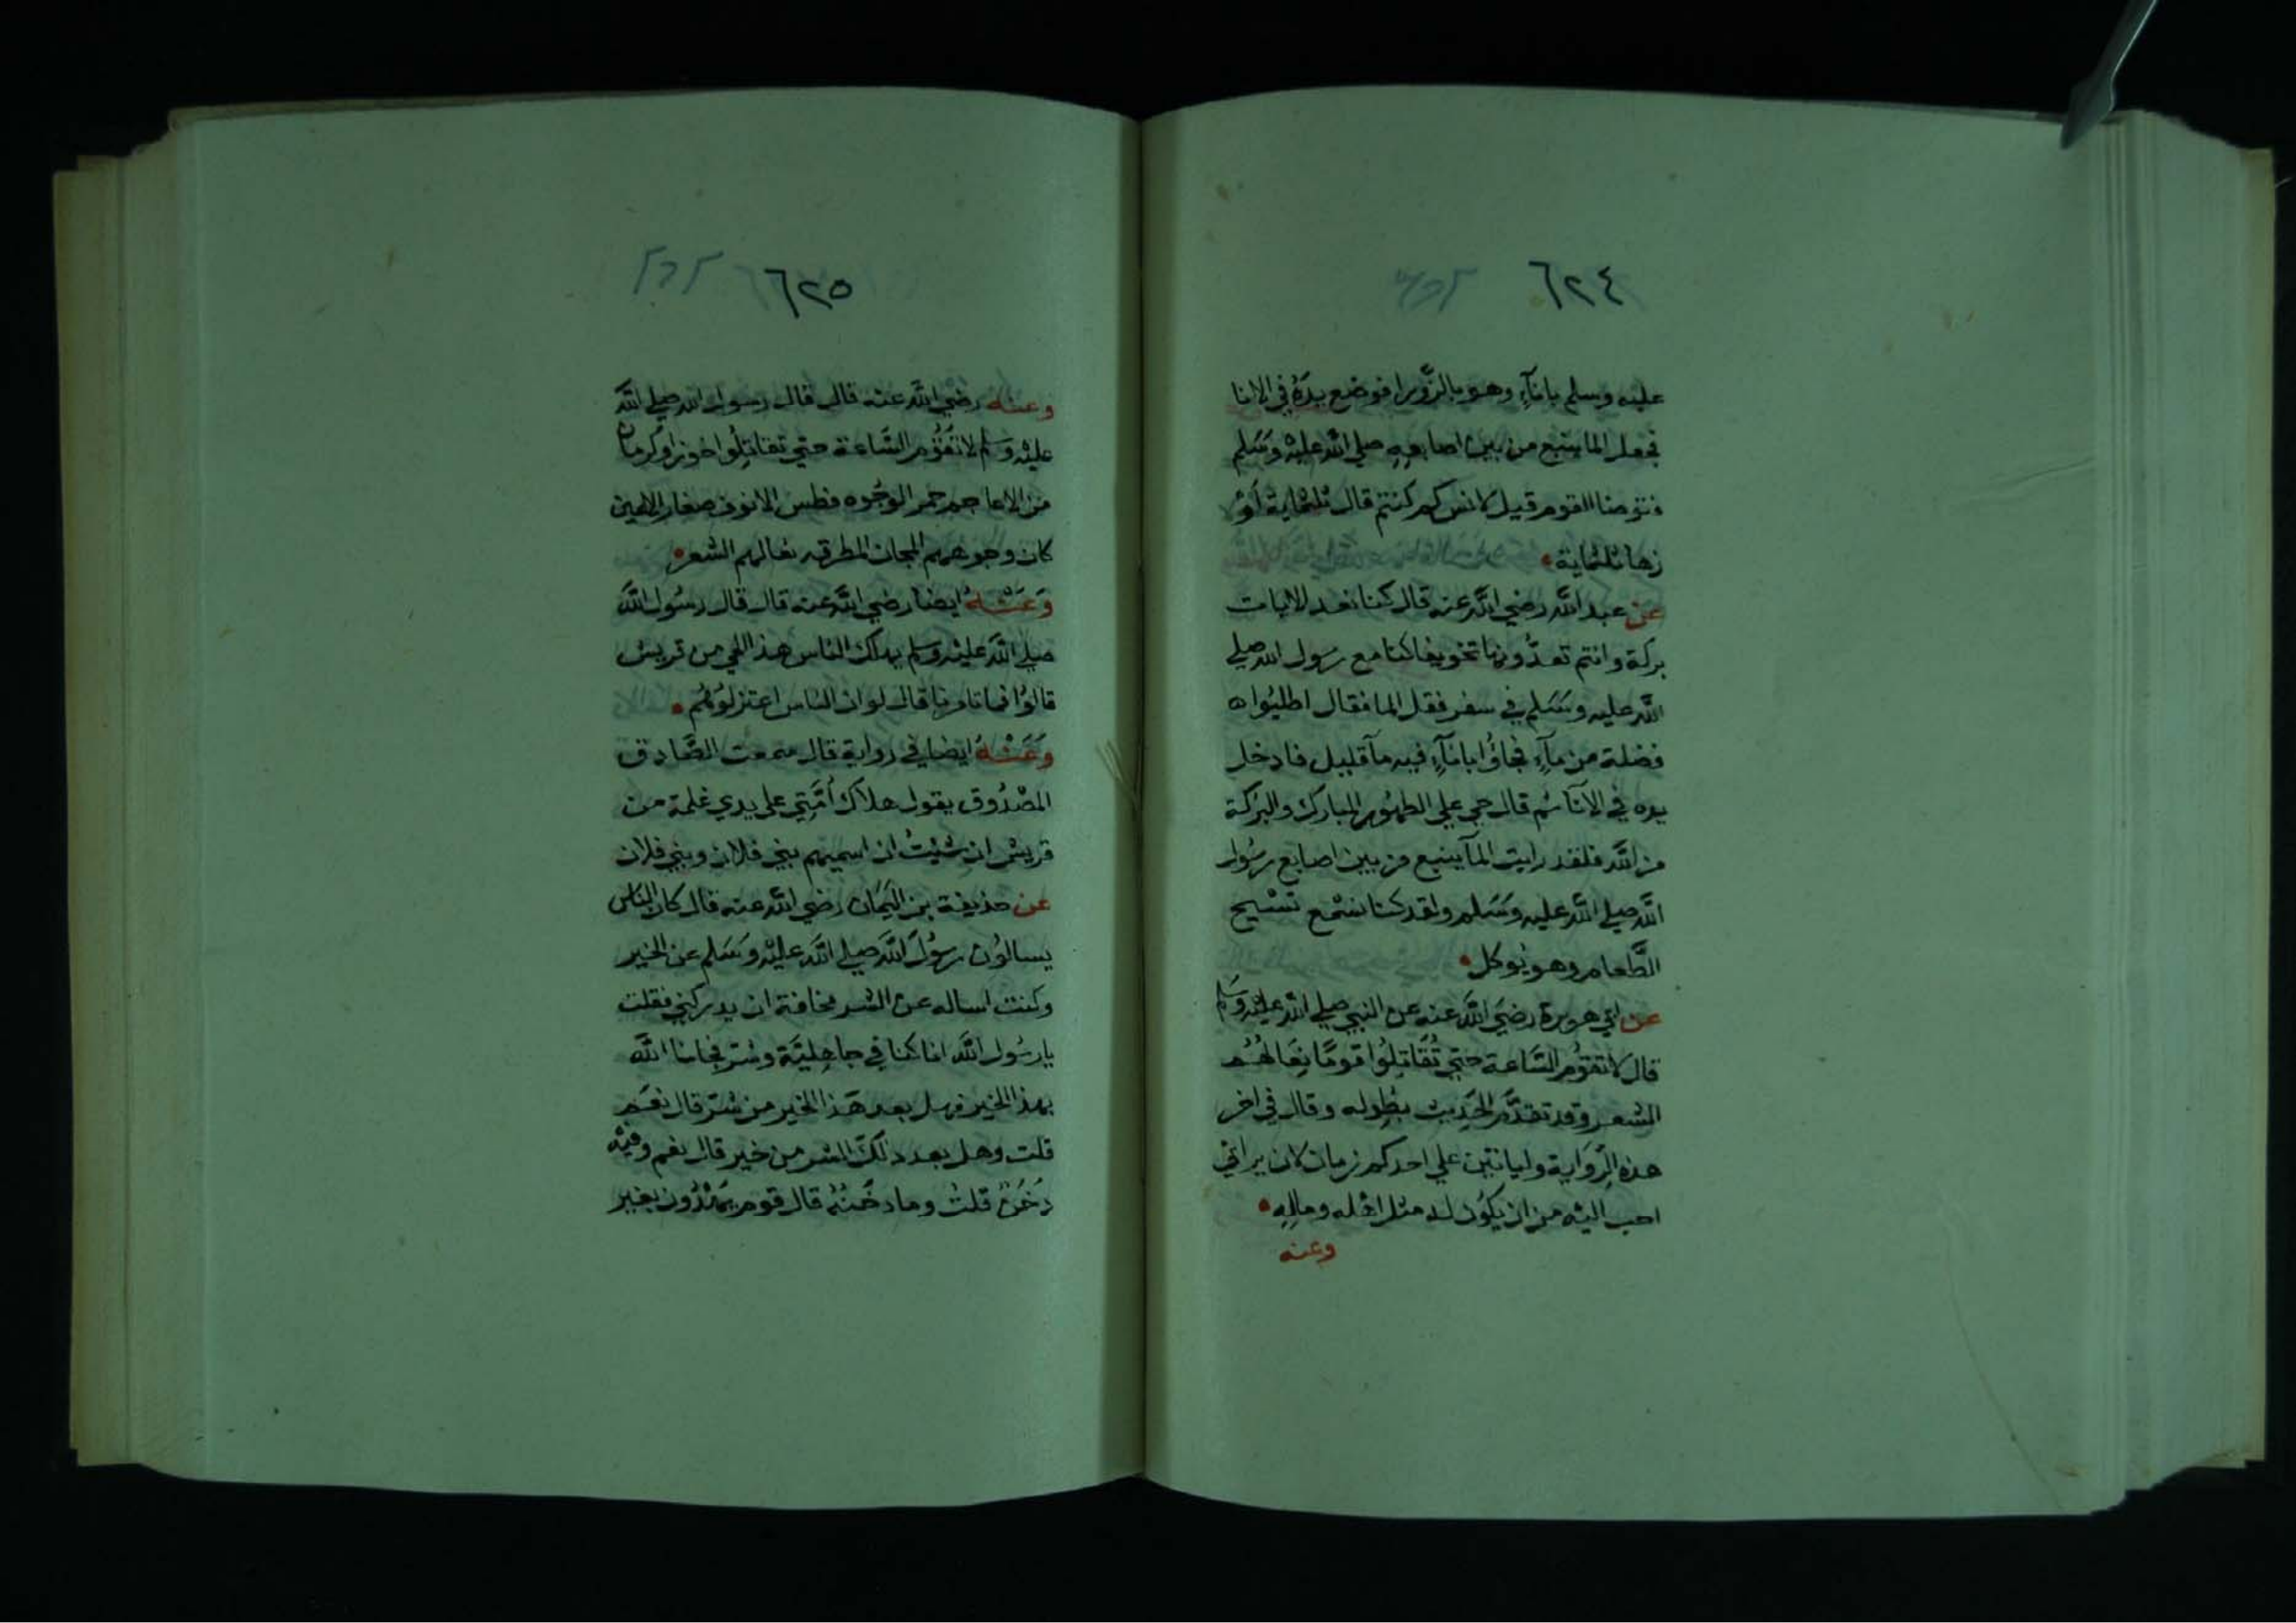 ٦٢٤
عليه وسلم باناء وهو بالزورا فوضع يده في الانا
فجعل الما ينبع من بين اصابعه صلي الله عليه وسلم
فتوضا القوم قيل لانس كم كنتم قال ثلثماية او
زها ثلثماية
عن عبد الله رضي الله عنه قال كنا نعد الايات
بركة وانتم تعدونها تخويفا كنا مع رسول الله صلي
الله عليه وسلم في سفر فقل الما فقال اطلبوا
فضلة من ماء فجاؤا باناء فيه ما قليل فادخل
يده في الانا ثم قال حي علي الطهور المبارك والبركة
من الله فلقد رايت الما ينبع من بين اصابع رسول
الله صلي الله عليه وسلم ولقد كنا نسمع تسبيح
الطعام وهو يوكل
عن ابي هريرة رضي الله عنه عن النبي صلي الله عليه وسلم
قال لا تقوم الساعة حتي تقاتلوا قوما نعالهم
الشعر وقد تقدم الحديث بطوله وقال في اخر
هذه الرواية ولياتين علي احدكم زمان لان يراني
احب اليه من ان يكون له مثل اهله وماله
وعنه
٦٢٥
وعنه رضي الله عنه قال قال رسول الله صلي الله
عليه وسلم لا تقوم الساعة حتي تقاتلوا خوزا وكرمان
من الاعاجم حمر الوجوه فطس الانوف صغار الاعين
كان وجوههم المجان المطرقه نعالهم الشعر
وعنه ايضا رضي الله عنه قال قال رسول الله
صلي الله عليه وسلم يهلك الناس هذا الحي من قريش
قالوا فما تامرنا قال لو ان الناس اعتزلوهم
وعنه ايضا في رواية قال سمعت الصادق
المصدوق يقول هلاك امتي علي يدي غلمة من
قريش ان شئت ان اسميهم بني فلان وبني فلان
عن حذيفة بن اليمان رضي الله عنه قال كان الناس
يسالون رسول الله صلي الله عليه وسلم عن الخير
وكنت اساله عن الشر مخافة ان يدركني فقلت
يا رسول الله انا كنا في جاهلية وشر فجانا الله
بهذا الخير فهل بعد هذا الخير من شر قال نعم
قلت وهل بعد ذلك الشر من خير قال نعم وفيه
دخن قلت وما دخنه قال قوم يهدون بغير